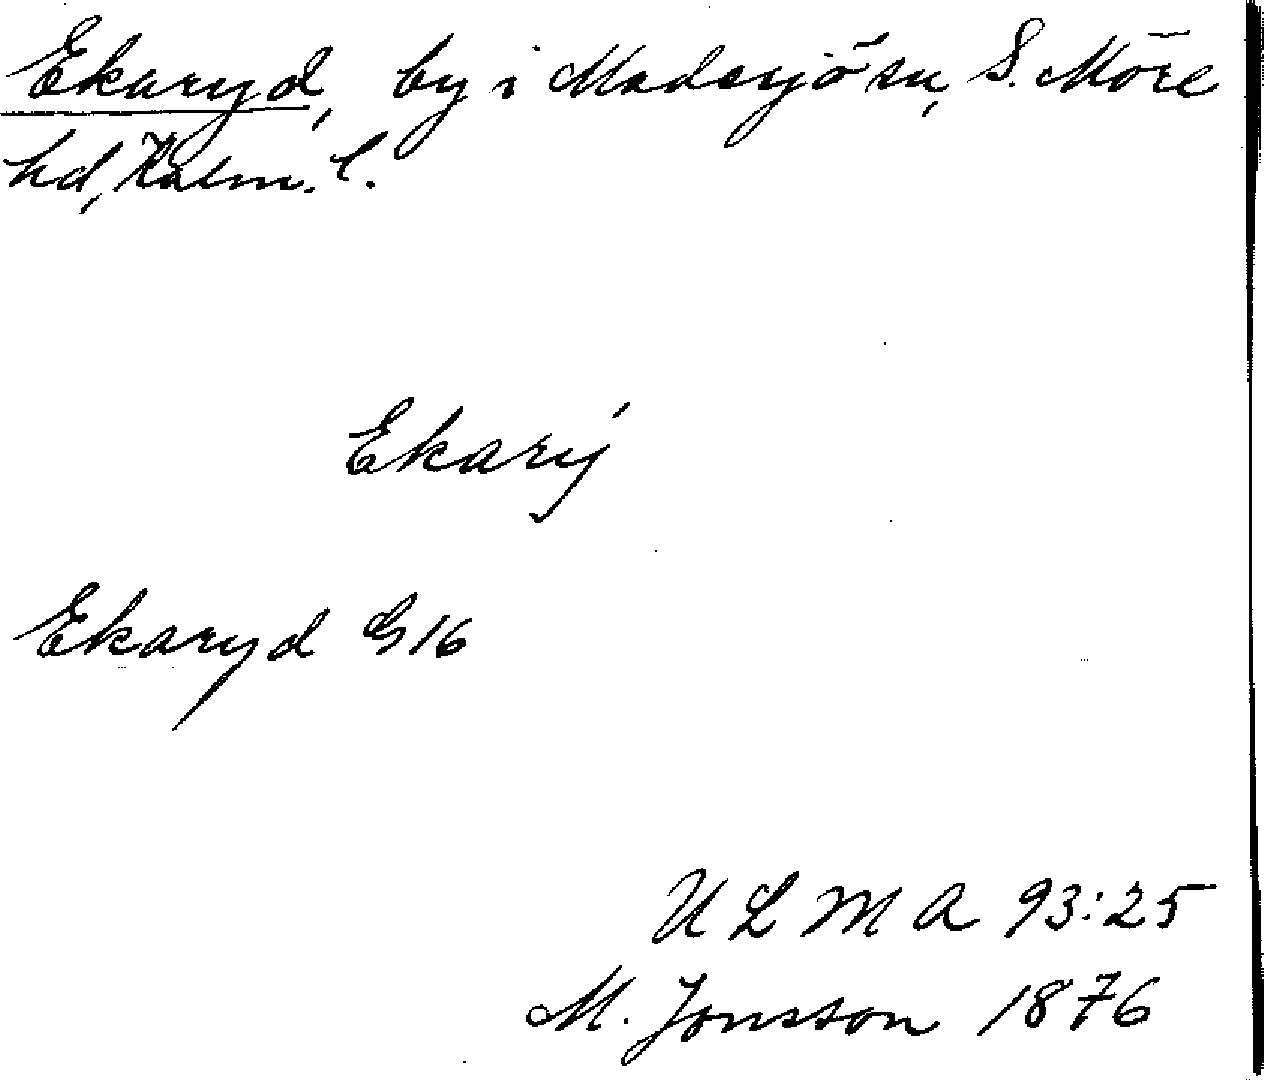 Ekaryd, by i Madesjö sn, S. Möre
hd, Kalm. l.
Ekarý
Ekaryd G 16
U L M A 93:25
M. Jonsson 1876